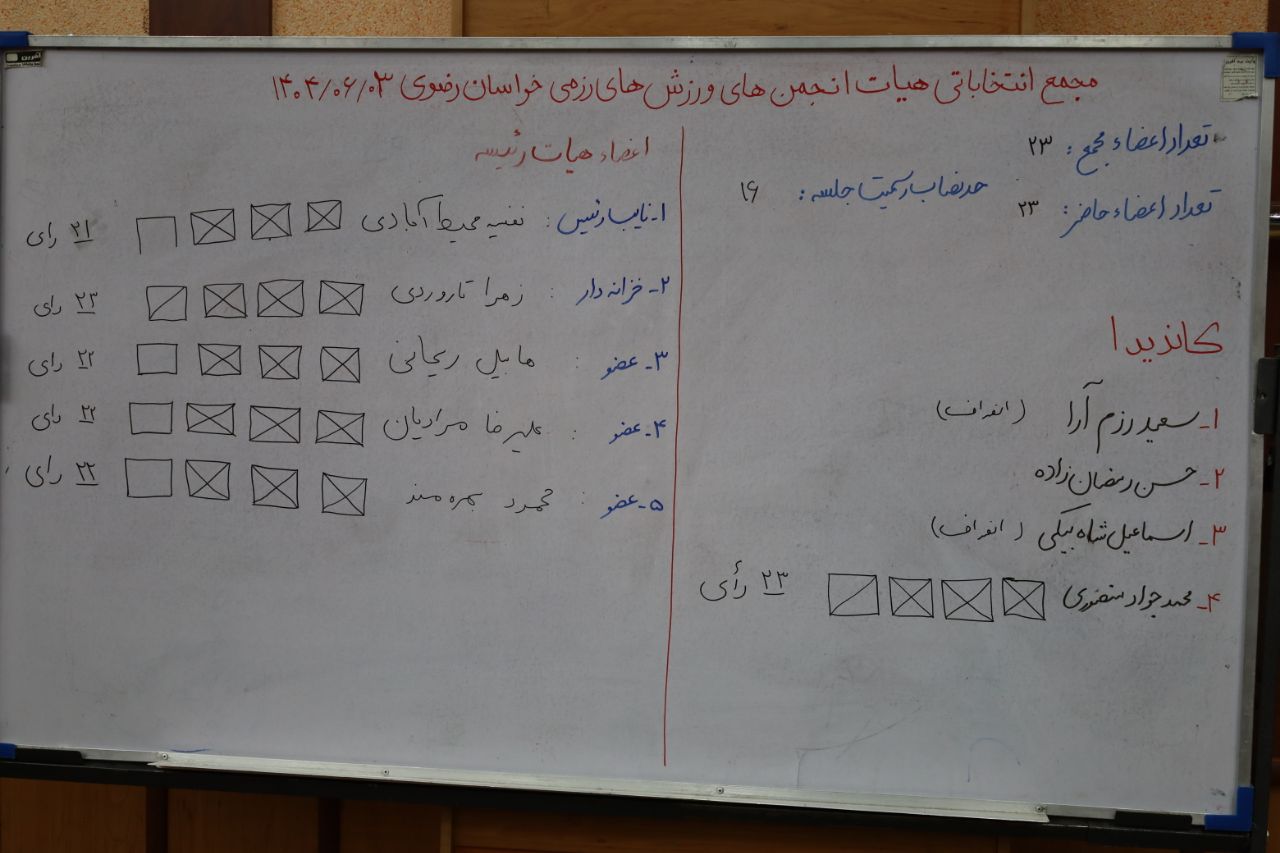 مجمع انتخاباتی هیات انجمن های ورزش های رزمی خراسان رضوی ۱۴۰۴/۰۶/۰۳
تعداد اعضاء مجمع : ۲۳
حد نصاب رسمیت جلسه : ۱۶
تعداد اعضاء حاضر : ۲۳
کاندیدا
۱- سعید رزم آرا (انصراف)
۲- حسن رمضان زاده
۳- اسماعیل شاه بیگی (انصراف)
۴- محمد جواد منصوری ۲۳ رأی
اعضاء هیات رئیسه
۱- نایب رئیس : محیط آبادی ۲۱ رای
۲- خزانه دار : زهرا تاروردی ۲۳ رای
۳- عضو : هابیل ریحانی ۲۲ رای
۴- عضو : علیرضا مرادیان ۲۲ رای
۵- عضو : محمود بهره مند ۲۲ رای